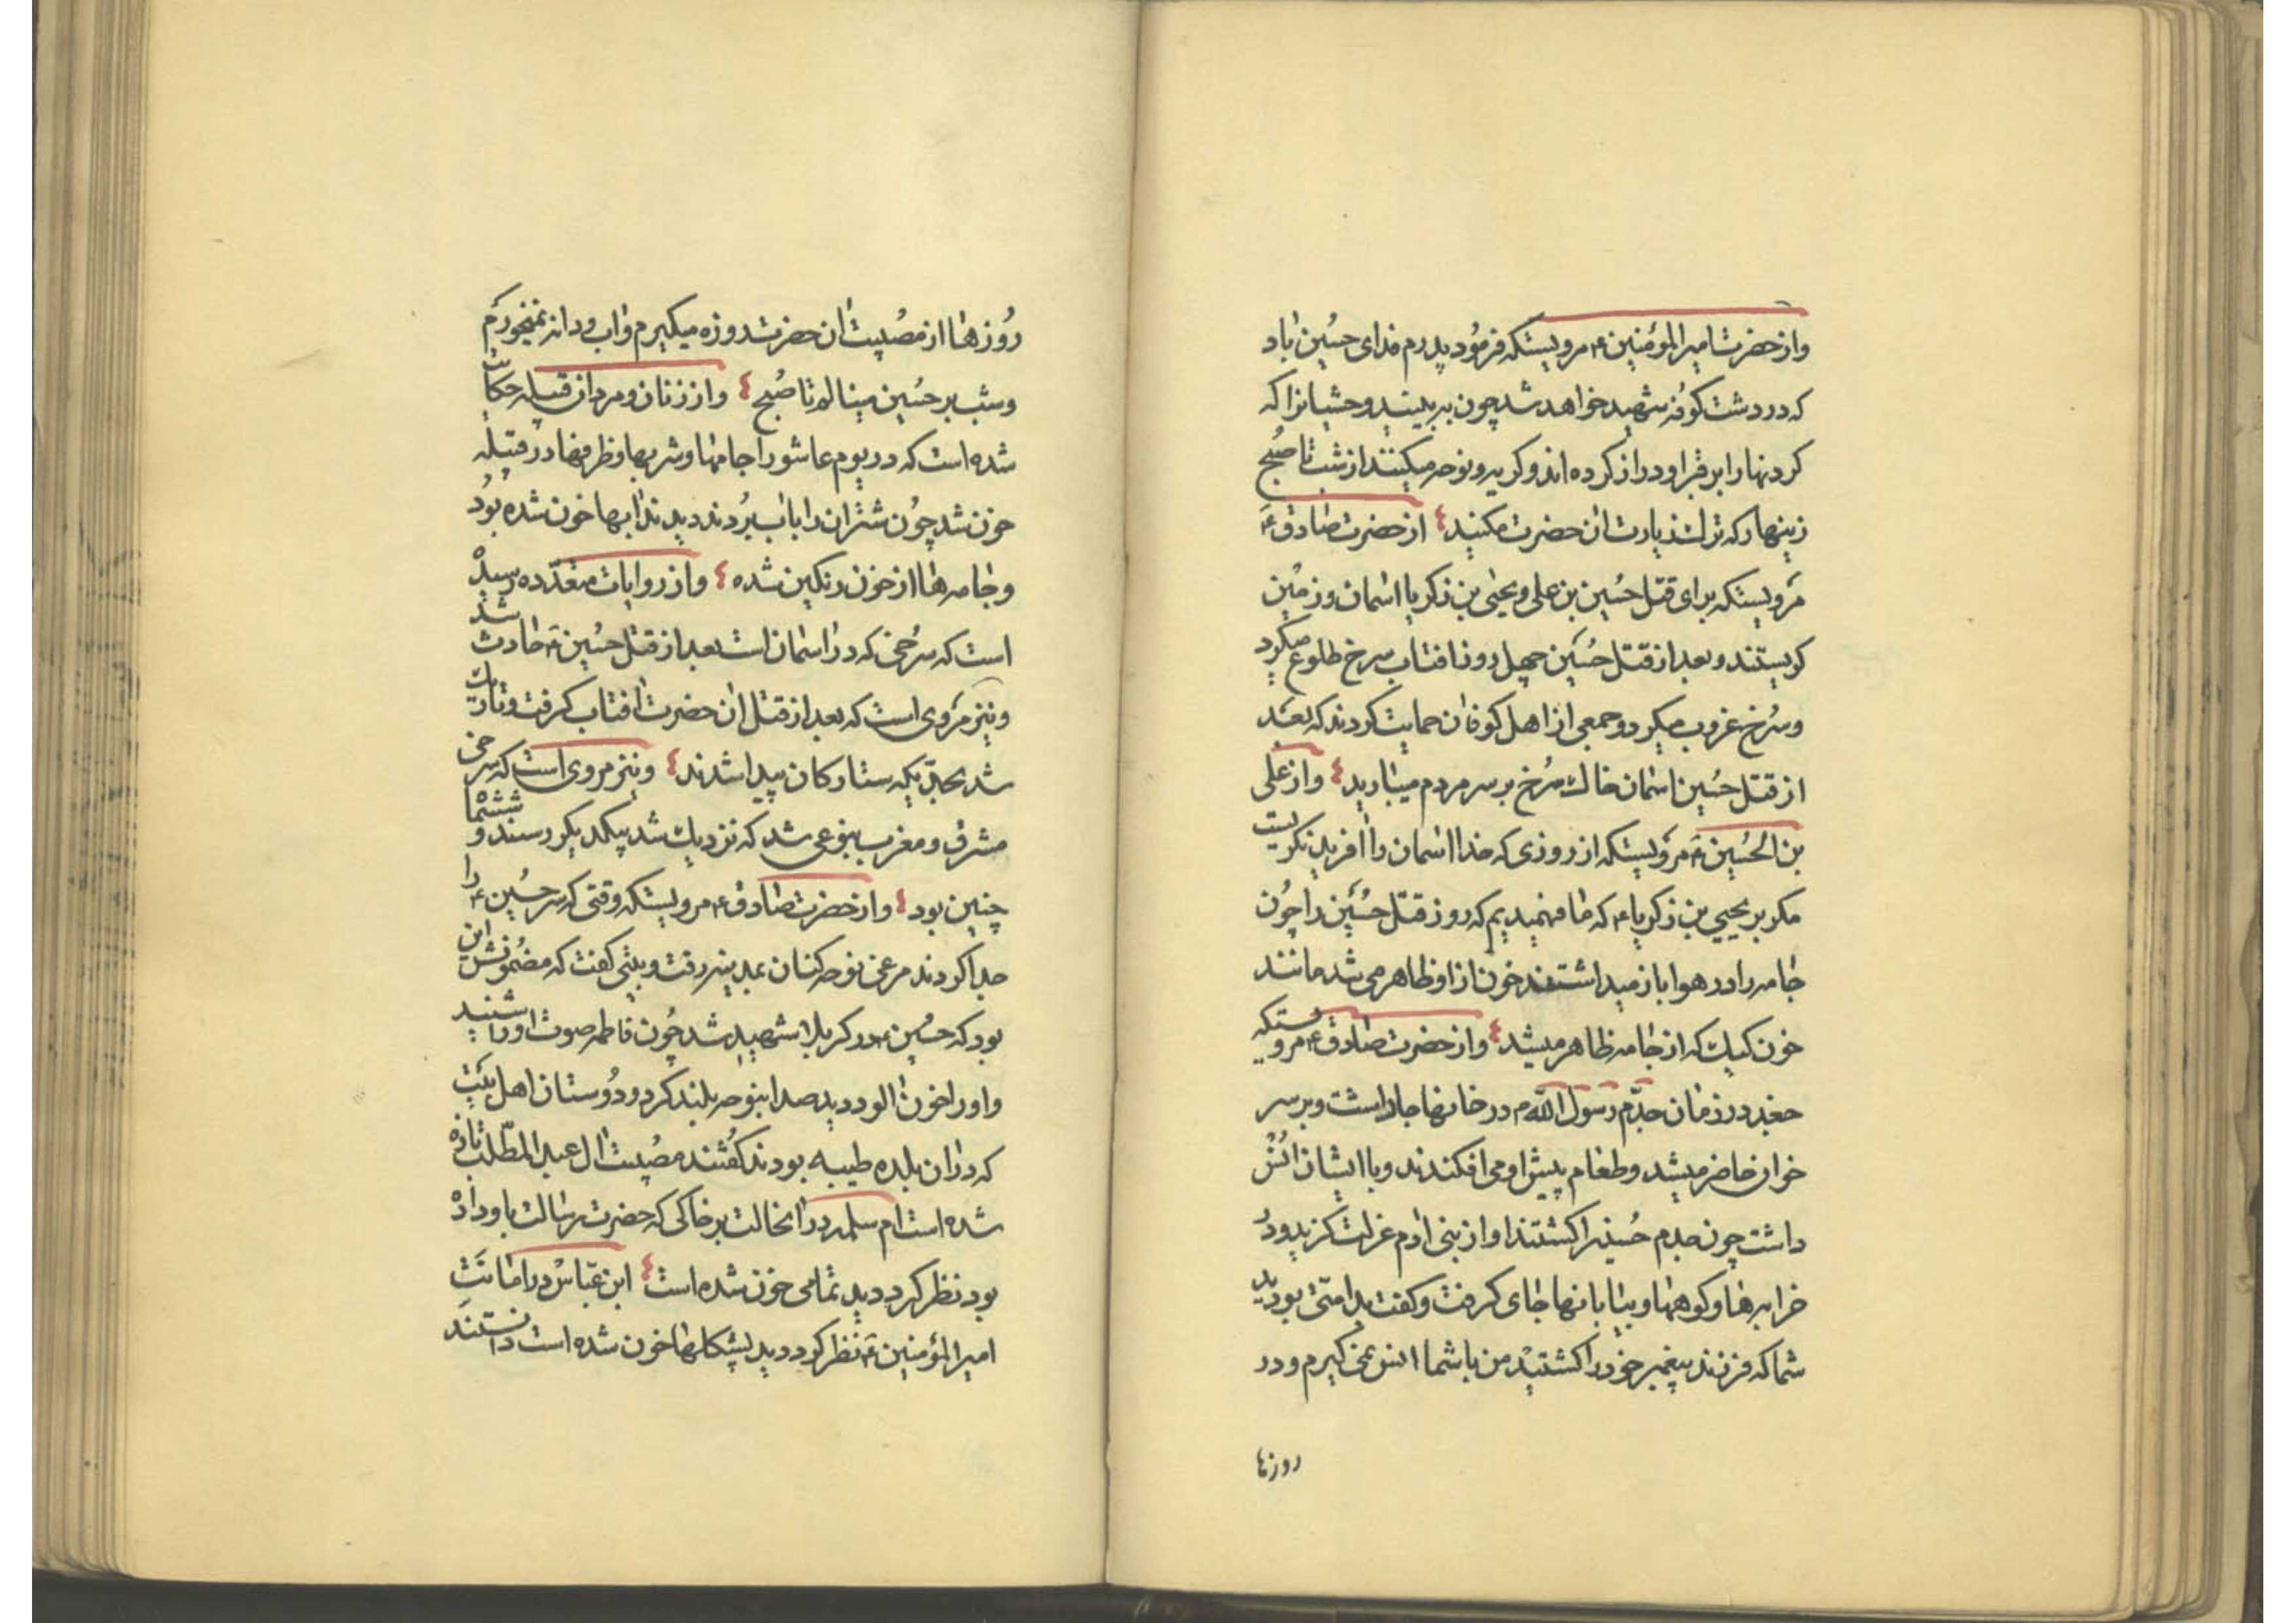 واز حضرت امیرالمؤمنین ۴ مرویستکه فرمود پدرم فدای حسین باد
که در دشت کوفه شهید خواهد شد چون به بینید وحشیانرا که
کردنها را بر قبر او دراز کرده‌اند و کریه و نوحه میکنند از شب تا صبح
زینهار که ترک زیارت ان حضرت مکنید از حضرت صادق ۴
مرویستکه برای قتل حسین بن علی و یحیی بن زکریا اسمان و زمین
کریستند و بعد از قتل حسین چهل روز افتاب سرخ طلوع میکرد
و سرخ غروب میکرد و جمعی از اهل کوفه ان حمایت کردند که بعد
از قتل حسین اسمان خاک سرخ بر سر مردم میبارید واز علی
بن الحسین ۴ مرویستکه از روزی که خدا اسمان را افرید نکریست
مکر بر یحیی بن زکریا ۴ که ما فهمیدیم که روز قتل حسین را چون
جامه را در هوا باز میداشتند خون از او ظاهر می شد مانند
خون کیک که از جامه ظاهر میشد واز حضرت صادق ۴ مرویستکه
جغد در زمان جدم رسول الله م در خانها جا داشت و بر سر
خوان حاضر میشد و طعام پیش او می افکندند و با ایشان انس
داشت چون جدم حسین را کشتند او از بنی ادم عزلت کزید و در
خرابه‌ها و کوهها و بیابانها جای کرفت و کفت بد امتی بودید
شما که فرزند پیغمبر خود را کشتید من با شما انس نمی کیرم و در
روزها
روزها از مصیبت ان حضرت روزه میکیرم و اب و دانه نمیخورم
و شب بر حسین مینالم تا صبح واز زنان و مردان قبیله حکایت
شده است که در یوم عاشورا جامها و شربها و ظرفها در قبیله
خون شد چون شتران را باب بردند دیدند ابها خون شده بود
و جامه‌ها از خون رنکین شده واز روایات متعدده رسیده
است که سرخی که در اسمان است بعد از قتل حسین ۴ حادث شد
و نیز مروی است که بعد از قتل ان حضرت افتاب کرفت و تاریک
شد بحدیکه ستارکان پیدا شدند و نیز مروی است که سرخی
مشرق و مغرب بنوعی شد که نزدیک شد بیکدیکر رسند و ششماه
چنین بود واز حضرت صادق ۴ مرویستکه وقتی که سر حسین ۴ را
جدا کردند مرغی نوحه کنان بمدینه رفت و بیتی کفت که مضمونش این
بود که حسین ۴ در کربلا شهید شد چون فاطمه صوت او را شنید
و او را خون الود دید صدا بنوحه بلند کرد و دوستان اهل بیت
که در ان بلده طیبه بودند کفتند مصیبت ال عبدالمطلب تازه
شده است ام سلمه در انحالت بر خاکی که حضرت رسالت باو داده
بود نظر کرد دید تمامی خون شده است ابن عباس در امانت
امیرالمؤمنین ۴ نظر کرد دید پشکلها خون شده است دانستند